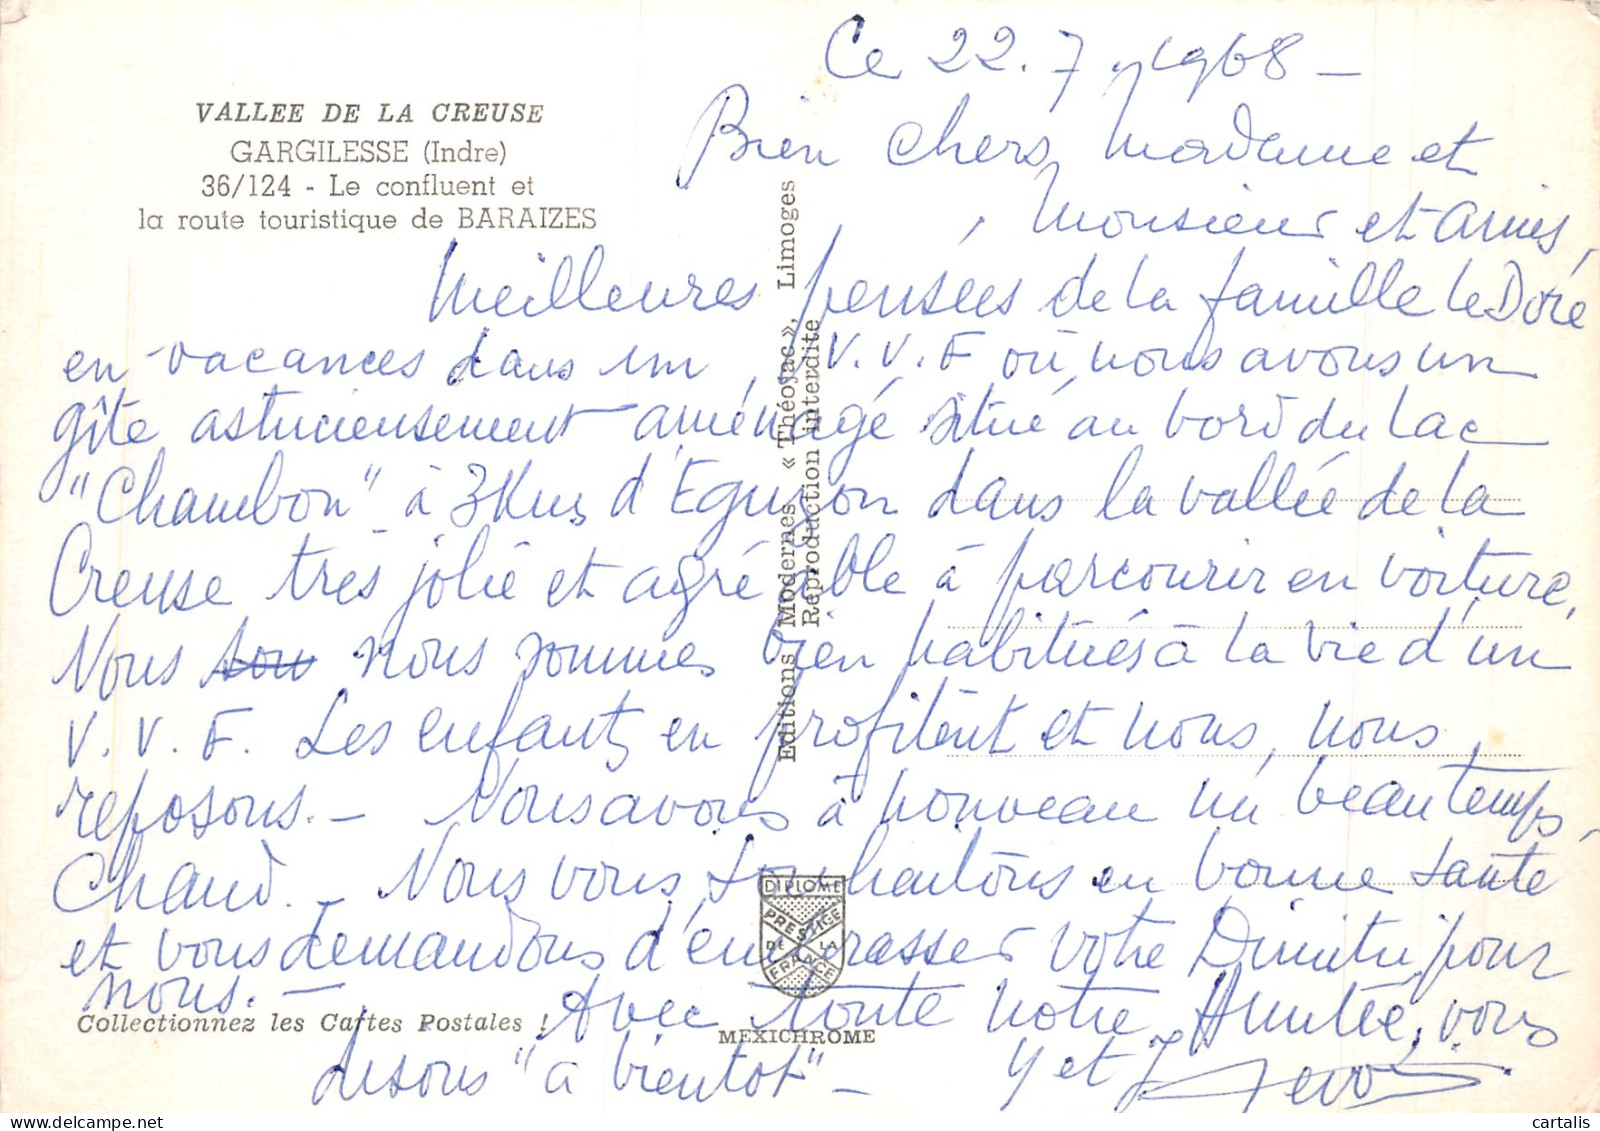 Ce 22.7.1968 -
VALLEE DE LA CREUSE
GARGILESSE (Indre)
36/124 - Le confluent et
la route touristique de BARAIZES
Bien chers, Madame et
Monsieur et Amis,
Meilleures pensées de la famille Le Doré
en vacances dans un V.V.F où nous avons un
gîte astucieusement aménagé situé au bord du Lac
"Chambon" à 3Kms d'Eguzon dans la vallée de la
Creuse très jolie et agréable à parcourir en voiture.
Nous sou nous sommes bien habitués à la vie d'un
V.V.F. Les enfants en profitent et nous, nous
reposons. - Nous avons à nouveau un beau temps
chaud. - Nous vous souhaitons en bonne santé
et vous demandons d'embrasser votre Dimitri pour
nous. - Avec toute notre Amitié, vous
disons "à bientôt" - Y et J
Editions Modernes « Théojac », Limoges
Reproduction interdite
DIPLOME
PRESTIGE
DE LA
FRANCE
Collectionnez les Cartes Postales !
MEXICHROME
cartalis